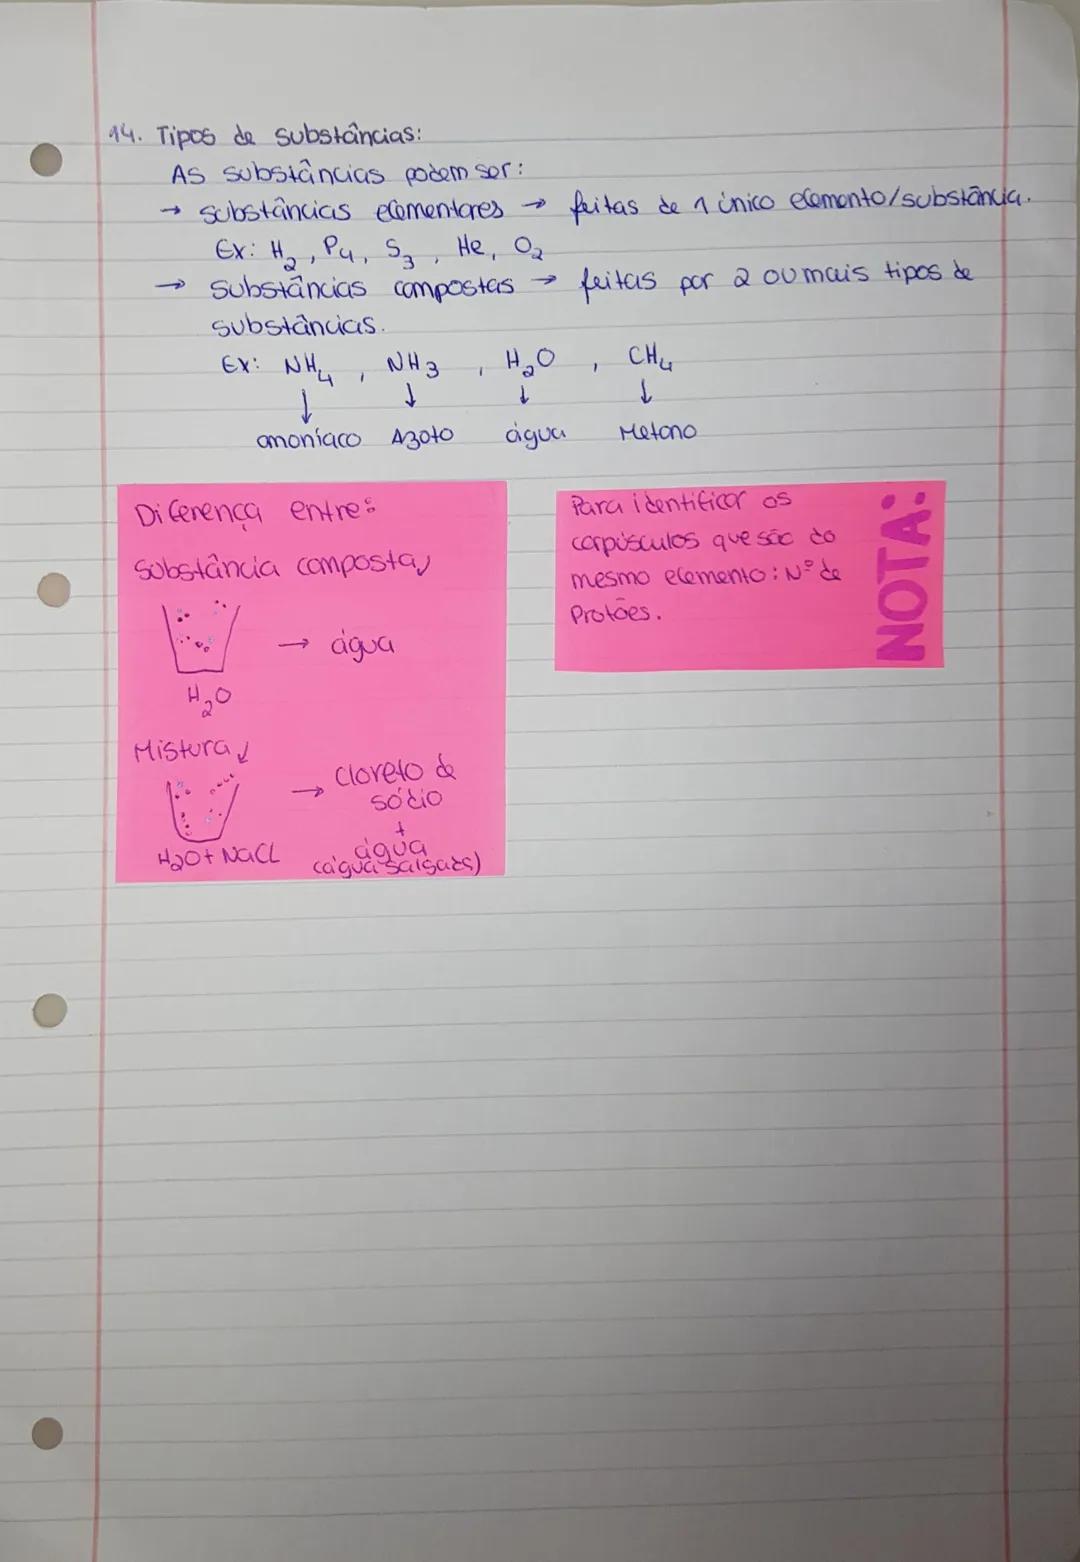 14. Tipos de substâncias:
As substâncias podem ser:
→ substâncias elementares → feitas de 1 único elemento/substância.
Ex: H₂, P₄, S₃, He, O₂
→ substâncias compostas → feitas por 2 ou mais tipos de
substâncias.
Ex: NH₄, NH₃, H₂O, CH₄
↓ ↓ ↓ ↓
amoníaco Azoto água Metano
Diferença entre:
Substância composta
→ água
H₂O
Mistura
→ cloreto de
sódio
+
água
H₂O + NaCL
(água salgada)
Para identificar os
corpúsculos que são do
mesmo elemento: Nº de
Protões.
NOTA: